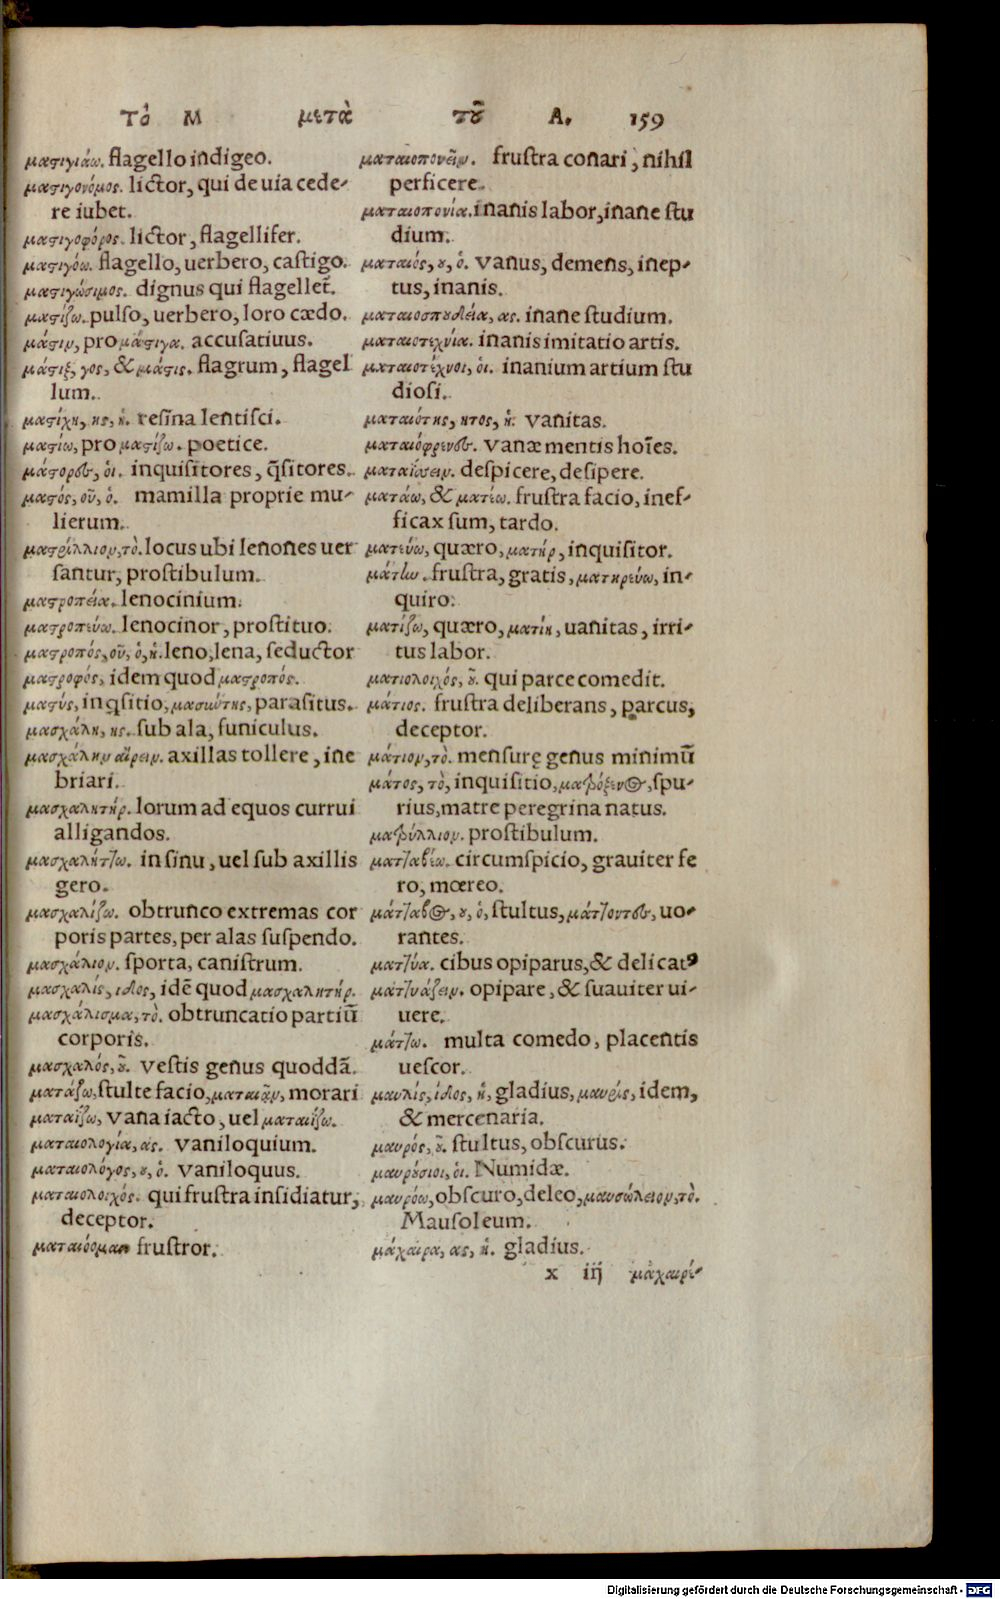 Τὸ Μ μετὰ τοῦ Α. 159
μαστιγιάω. flagello indigeo.
μαστιγονόμος. lictor, qui de uia cede-
re iubet.
μαστιγοφόρος. lictor, flagellifer.
μαστιγόω. flagello, uerbero, castigo.
μαστιγώσιμος. dignus qui flagellet̃.
μαστίζω. pulso, uerbero, loro cædo.
μάστιν, pro μάστιγα. accusatiuus.
μάστιξ, γος, & μάστις. flagrum, flagel
lum.
μαστίχη, ης, ἡ. resina lentisci.
μαστίω, pro μαστίζω. poetice.
μάστορες, οἱ. inquisitores, q̃sitores.
μαστός, οῦ, ὁ. mamilla proprie mu-
lierum.
μαστρύλλιον, τὸ. locus ubi lenones uer
santur, prostibulum.
μαστροπεία. lenocinium.
μαστροπεύω. lenocinor, prostituo.
μαστροπός, οῦ, ὁ, ἡ. leno, lena, seductor
μαστροφός, idem quod μαστροπός.
μαστύς, inq̃sitio, μασυώτης, parasitus.
μασχάλη, ης. sub ala, funiculus.
μασχάλην αἴρειν. axillas tollere, ine
briari.
μασχαλητήρ. lorum ad equos currui
alligandos.
μασχαλήτζω. in sinu, uel sub axillis
gero.
μασχαλίζω. obtrunco extremas cor
poris partes, per alas suspendo.
μασχάλιον. sporta, canistrum.
μασχαλίς, ιδος, idē quod μασχαλητήρ.
μασχάλισμα, τὸ. obtruncatio partiū
corporis.
μασχαλός, οῦ. vestis genus quoddā.
ματάζω, stulte facio, ματαιᾷν, morari
ματαΐζω, vana iacto, uel ματαιΐζω.
ματαιολογία, ας. vaniloquium.
ματαιολόγος, ου, ὁ. vaniloquus.
ματαιολοιχός. qui frustra insidiatur,
deceptor.
ματαιόομαι frustror.
ματαιοπονεῖν. frustra conari, nihil
perficere.
ματαιοπονία. inanis labor, inane stu
dium.
ματαιός, ου, ὁ. vanus, demens, inep-
tus, inanis.
ματαιοσπουδεία, ας. inane studium.
ματαιοτεχνία. inanis imitatio artis.
ματαιοτέχνοι, οἱ. inanium artium stu
diosi.
ματαιότης, ητος, ἡ. vanitas.
ματαιόφρενες. vanæ mentis hoīes.
ματαΐσειν. despicere, desipere.
ματάω, & ματέω. frustra facio, inef-
ficax sum, tardo.
ματεύω, quæro, ματήρ, inquisitor.
μάτην. frustra, gratis, ματηρεύω, in-
quiro.
ματίζω, quæro, ματίη, uanitas, irri-
tus labor.
ματιολοιχός, οῦ. qui parce comedit.
μάτιος. frustra deliberans, parcus,
deceptor.
μάτιον, τὸ. mensurę genus minimū
μάτος, τὸ, inquisitio, ματρόξενος, spu-
rius, matre peregrina natus.
ματρύλλιον. prostibulum.
ματζαβέω. circumspicio, grauiter fe
ro, mœreo.
μάτζαβος, ου, ὁ, stultus, μάτζοντες, uo-
rantes.
ματζύα. cibus opiparus, & delicatꝰ
ματζυάζειν. opipare, & suauiter ui-
uere.
μάτζω. multa comedo, placentis
uescor.
μαυλίς, ίδος, ἡ, gladius, μαυρίς, idem,
& mercenaria.
μαυρός, οῦ. stultus, obscurus.
μαυρούσιοι, οἱ. Numidæ.
μαυρόω, obscuro, deleo, μαυσώλειον, τὸ.
Mausoleum.
μάχαιρα, ας, ἡ. gladius.
x iij μαχαιρί-
Digitalisierung gefördert durch die Deutsche Forschungsgemeinschaft - DFG